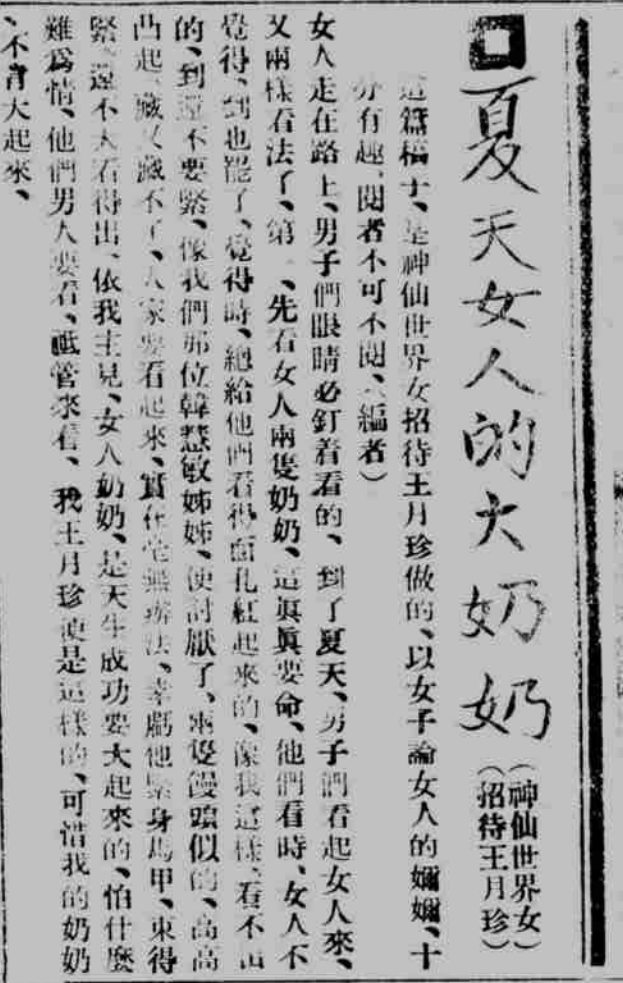 夏天女人的大奶奶
（神仙世界女
招待王月珍）
這篇稿子、是神仙世界女招待王月珍做的、以女子論女人的嬭嬭、十
分有趣、閱者不可不閱、（編者）
女人走在路上、男子們眼睛必釘着看的、到了夏天、男子們看起女人來、
又兩樣看法了、第一、先看女人兩隻奶奶、這眞眞要命、他們看時、女人不
覺得、到也罷了、覺得時、總給他們看得面孔紅起來的、像我這樣、看不出
的、到還不要緊、像我們那位韓慧敏姊姊、便討厭了、兩隻饅頭似的、高高
凸起、藏又藏不了、人家要看起來、實在毫無辦法、幸虧他緊身馬甲、束得
緊、還不大看得出、依我主見、女人奶奶、是天生成功要大起來的、怕什麼
難爲情、他們男人要看、祗管來看、我王月珍便是這樣的、可惜我的奶奶
、不肯大起來、